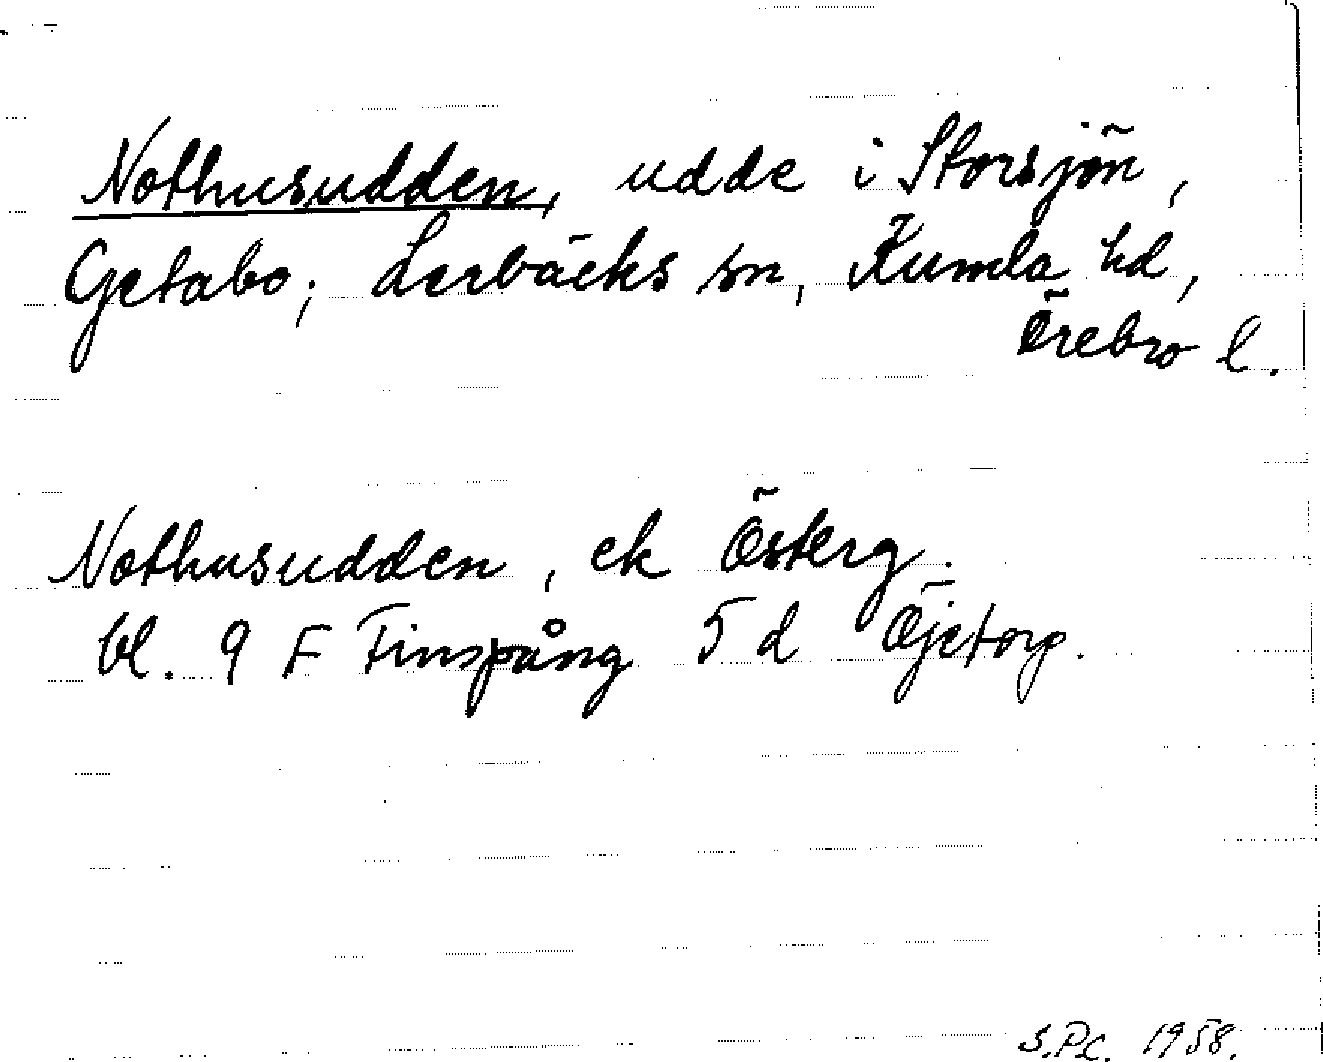 Nothusudden, udde i Storsjön,
Getabo; Lerbäcks sn, Kumla hd,
Örebro l.
Nothusudden, ek Österg.
bl. 9 F Finspång 5 d Öjetorp.
S.P.C. 1958.